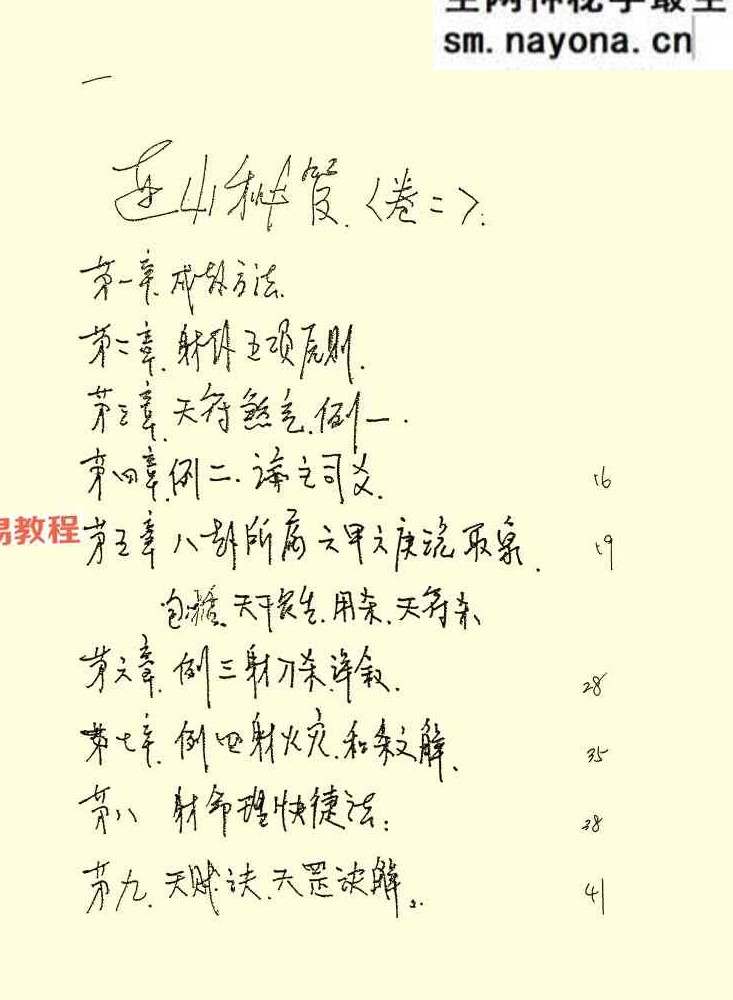 sm.nayona.cn
一
连山秘笈.〈卷二〉.
第一章.成卦方法.
第二章.射卦五项原则.
第三章.天符煞克.例一.
第四章.例二.论主司爻. 16
第五章 八卦所属六甲六庚说取象. 19
易教程
包括.天干长生.用杀.天符杀、
第六章.例三射刀杀详叙. 28
第七章.例四射火灾.和条文解. 35
第八 射命理快捷法: 38
第九.天赋诀.天罡诀解. 41